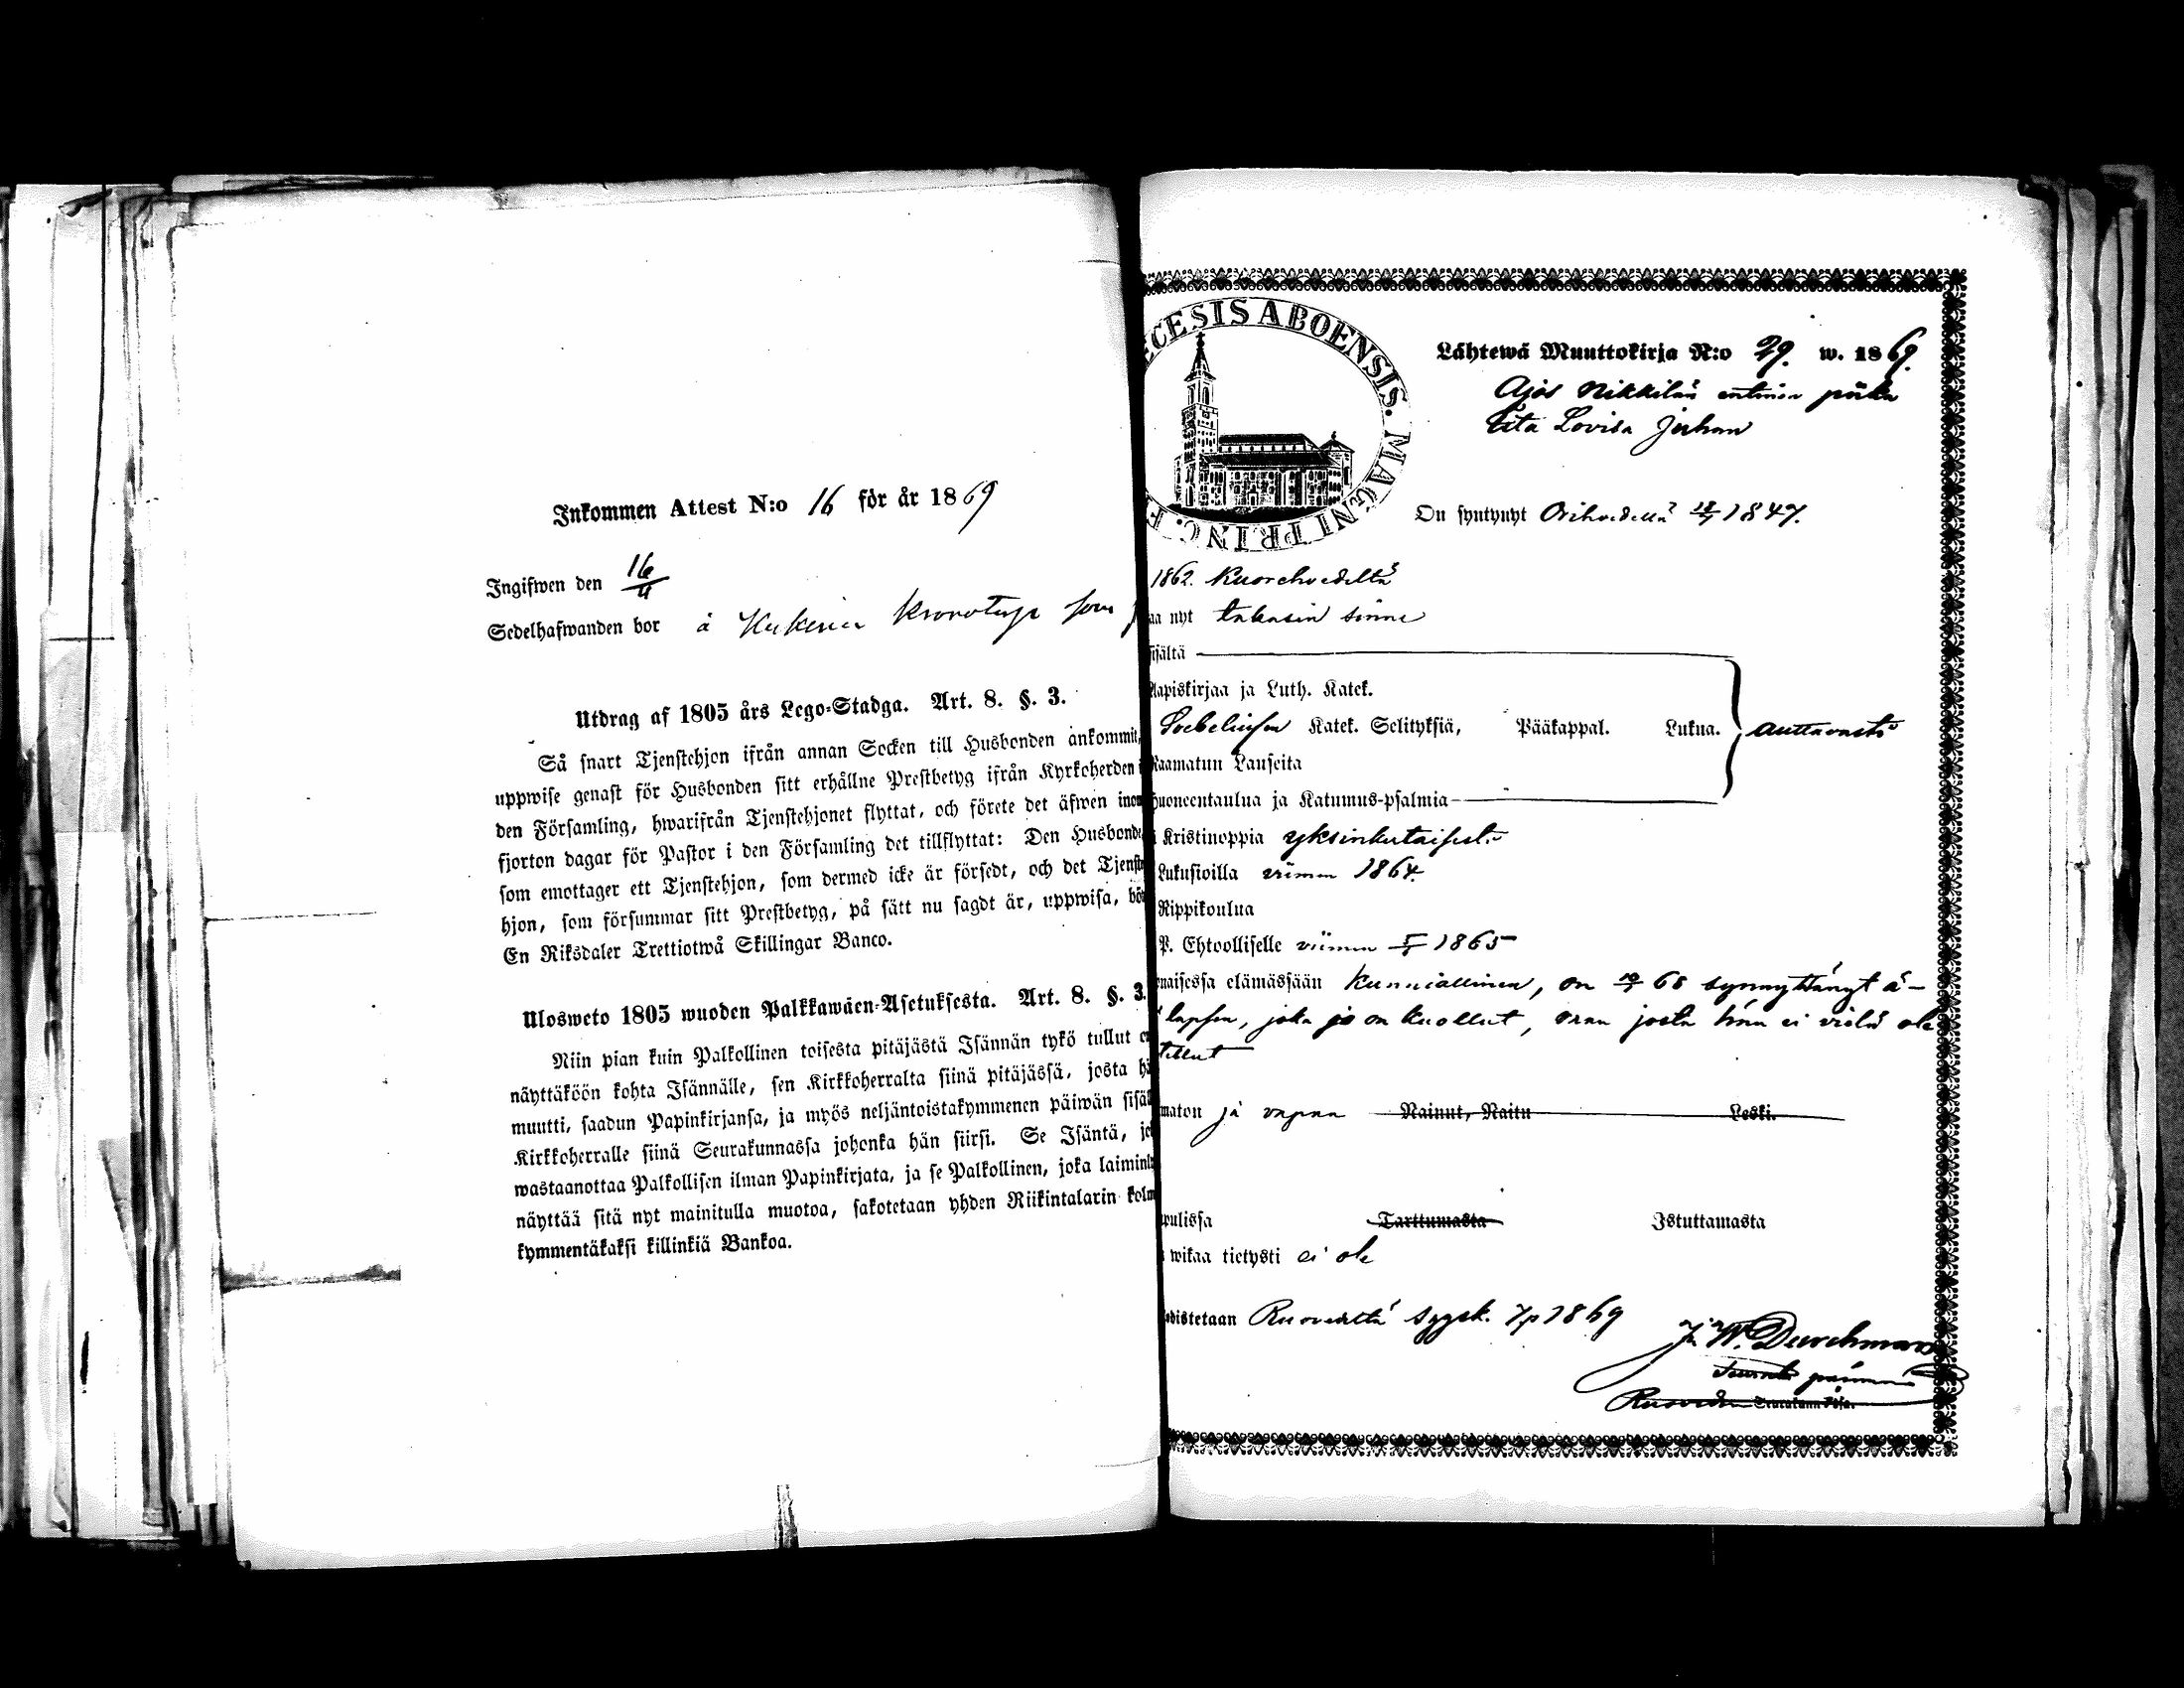 Inkommen Attest N:o 16 för år 1869
Ingifwen den 16/4
Sedelhafwanden bor å
Utdrag af 1805 års Lego-Stadga. Art. 8. §. 3.
Så snart Tjenstehjon ifrån annan Socken till Husbonden ankommit,
uppwise genast för Husbonden sitt erhållne Prestbetyg ifrån Kyrkoherden i
den Församling, hwarifrån Tjenstehjonet flyttat, och förete det äfwen inom
fjorton dagar för Pastor i den Församling det tillflyttat: Den Husbonde
som emottager ett Tjenstehjon, som dermed icke är försedt, och det Tjenste
hjon, som försummar sitt Prestbetyg, på sätt nu sagdt är, uppwisa, böt
En Riksdaler Trettiotwå Skillingar Banco.
Ulosweto 1805 wuoden Palkkawäen-Asetuksesta. Art. 8. §. 3.
Niin pian kuin Palkollinen toisesta pitäjästä Isännän tykö tullut on
näyttäköön kohta Isännälle, sen Kirkkoherralta siinä pitäjässä, josta hä
muutti, saadun Papinkirjansa, ja myös neljäntoistakymmenen päiwän sisäl
Kirkkoherralle siinä Seurakunnassa johonka hän siirsi. Se Isäntä, jo
wastaanottaa Palkollisen ilman Papinkirjata, ja se Palkollinen, joka laiminly
näyttää sitä nyt mainitulla muotoa, sakotetaan yhden Riikintalarin kolm
kymmentäkaksi killinkiä Bankoa.
ECESIS ABOENSIS. MAGNI PRINC. F
Lähtewä Muuttokirja N:o 29. w. 1869.
Ajos Nikkilän entinen piika
Lovisa Juhan
On syntynyt Orihvedellä 1847.
1862. Kuorehvedeltä
aa nyt takasin sinne
sisältä
Aapiskirjaa ja Luth. Katek.
Katek. Selityksiä, Pääkappal. Lukua. auttavasti
Raamatun Lauseita
Huoneentaulua ja Katumus-psalmia
Kristinoppia yksinkertaisesti
Lukusioilla viimen 1864.
Rippikoulua
P. Ehtoolliselle viimen 1865
maisessa elämässään kunniallinen, on 68 synnyttänyt ä-
lapsen, joka jo on kuollut, vaan josta hän ei vielä ole
maton ja vapaa Nainut, Naitu Leski.
pulissa Tarttumasta Istuttamasta
wikaa tietysti ei ole
distetaan Ruovedeltä Syysk. 7 p 1869
J. W. Durchman
Ruoveden Seurakunnassa.